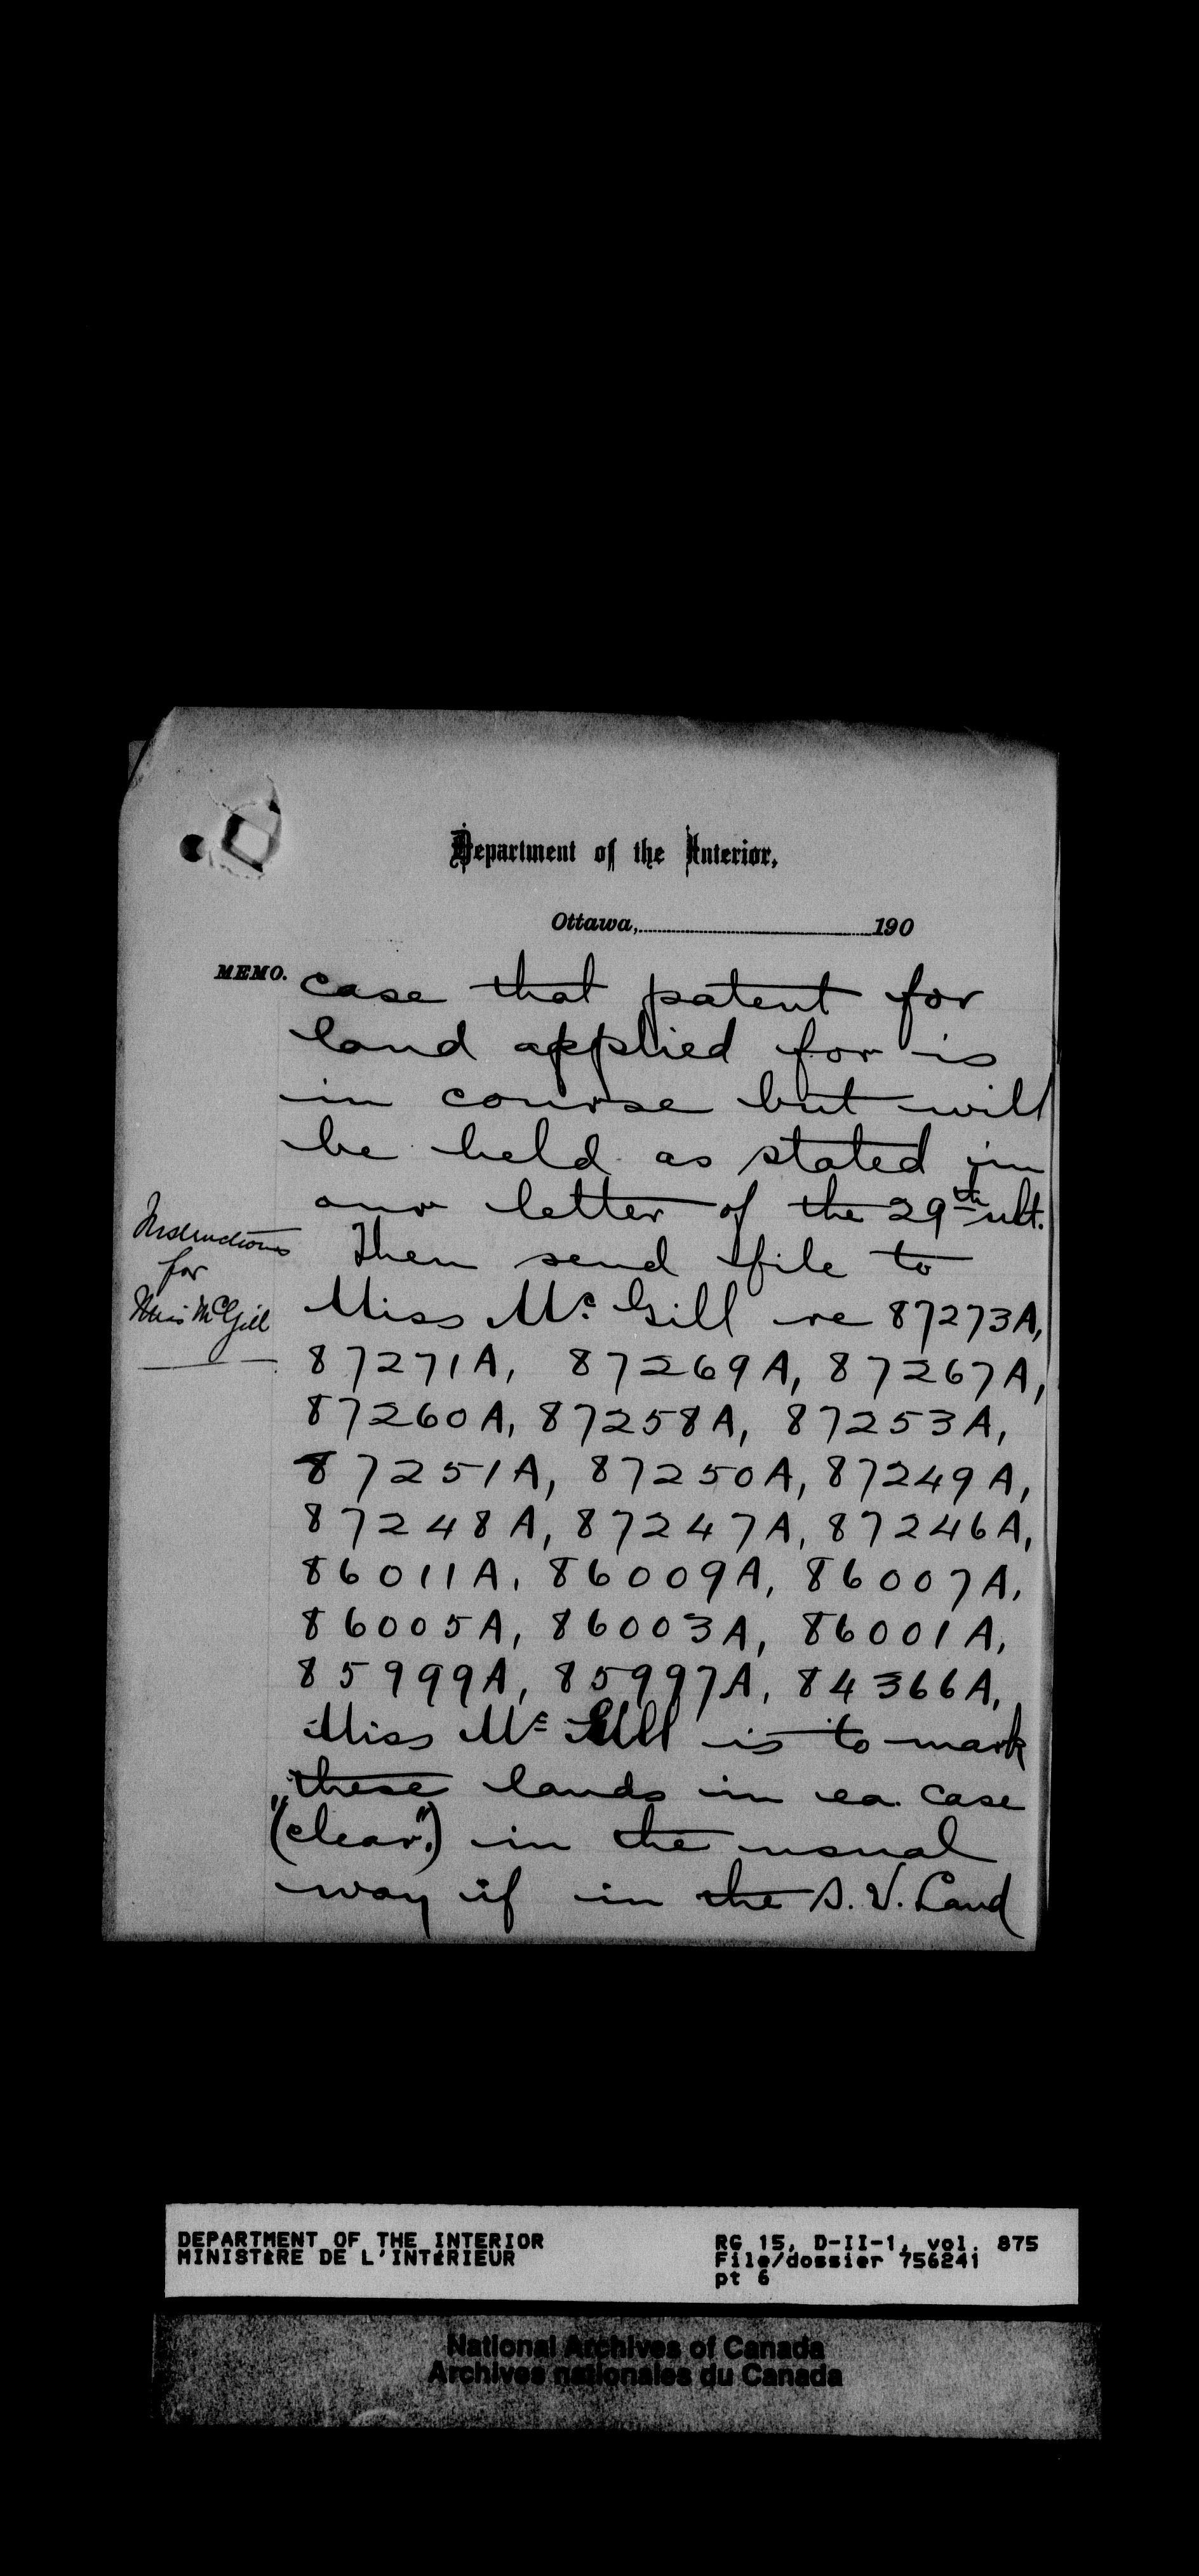 Department of the Interior,
Ottawa, 190
MEMO.
case that patent for
land applied for is
in course but will
be held as stated in
our letter of the 29th ult.
Instructions
for
Miss McGill
Then send file to
Miss Mc Gill re 87273A,
87271A, 87269A, 87267A,
87260A, 87258A, 87253A,
87251A, 87250A, 87249A,
87248A, 87247A, 87246A,
86011A, 86009A, 86007A,
86005A, 86003A, 86001A,
85999A, 85997A, 84366A,
Miss Mc Gill is to mark
these lands in ea. case
("clear".) in the usual
way if in the S. V. Land
DEPARTMENT OF THE INTERIOR
MINISTÈRE DE L'INTÉRIEUR
RG 15, D-II-1, vol. 875
File/dossier 756241
pt 6
National Archives of Canada
Archives nationales du Canada